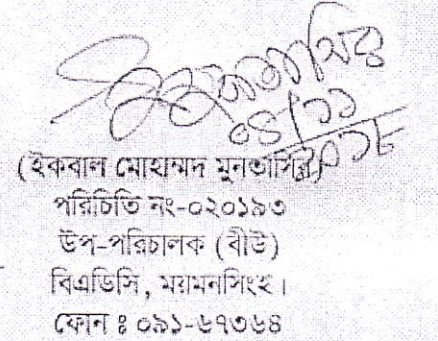 ০৪/১১
(ইকবাল মোহাম্মদ মুনতাসির)
পরিচিতি নং-০২০১৯৩
উপ-পরিচালক (বীউ)
বিএডিসি, ময়মনসিংহ।
ফোন ঃ ০৯১-৬৭৩৬৪